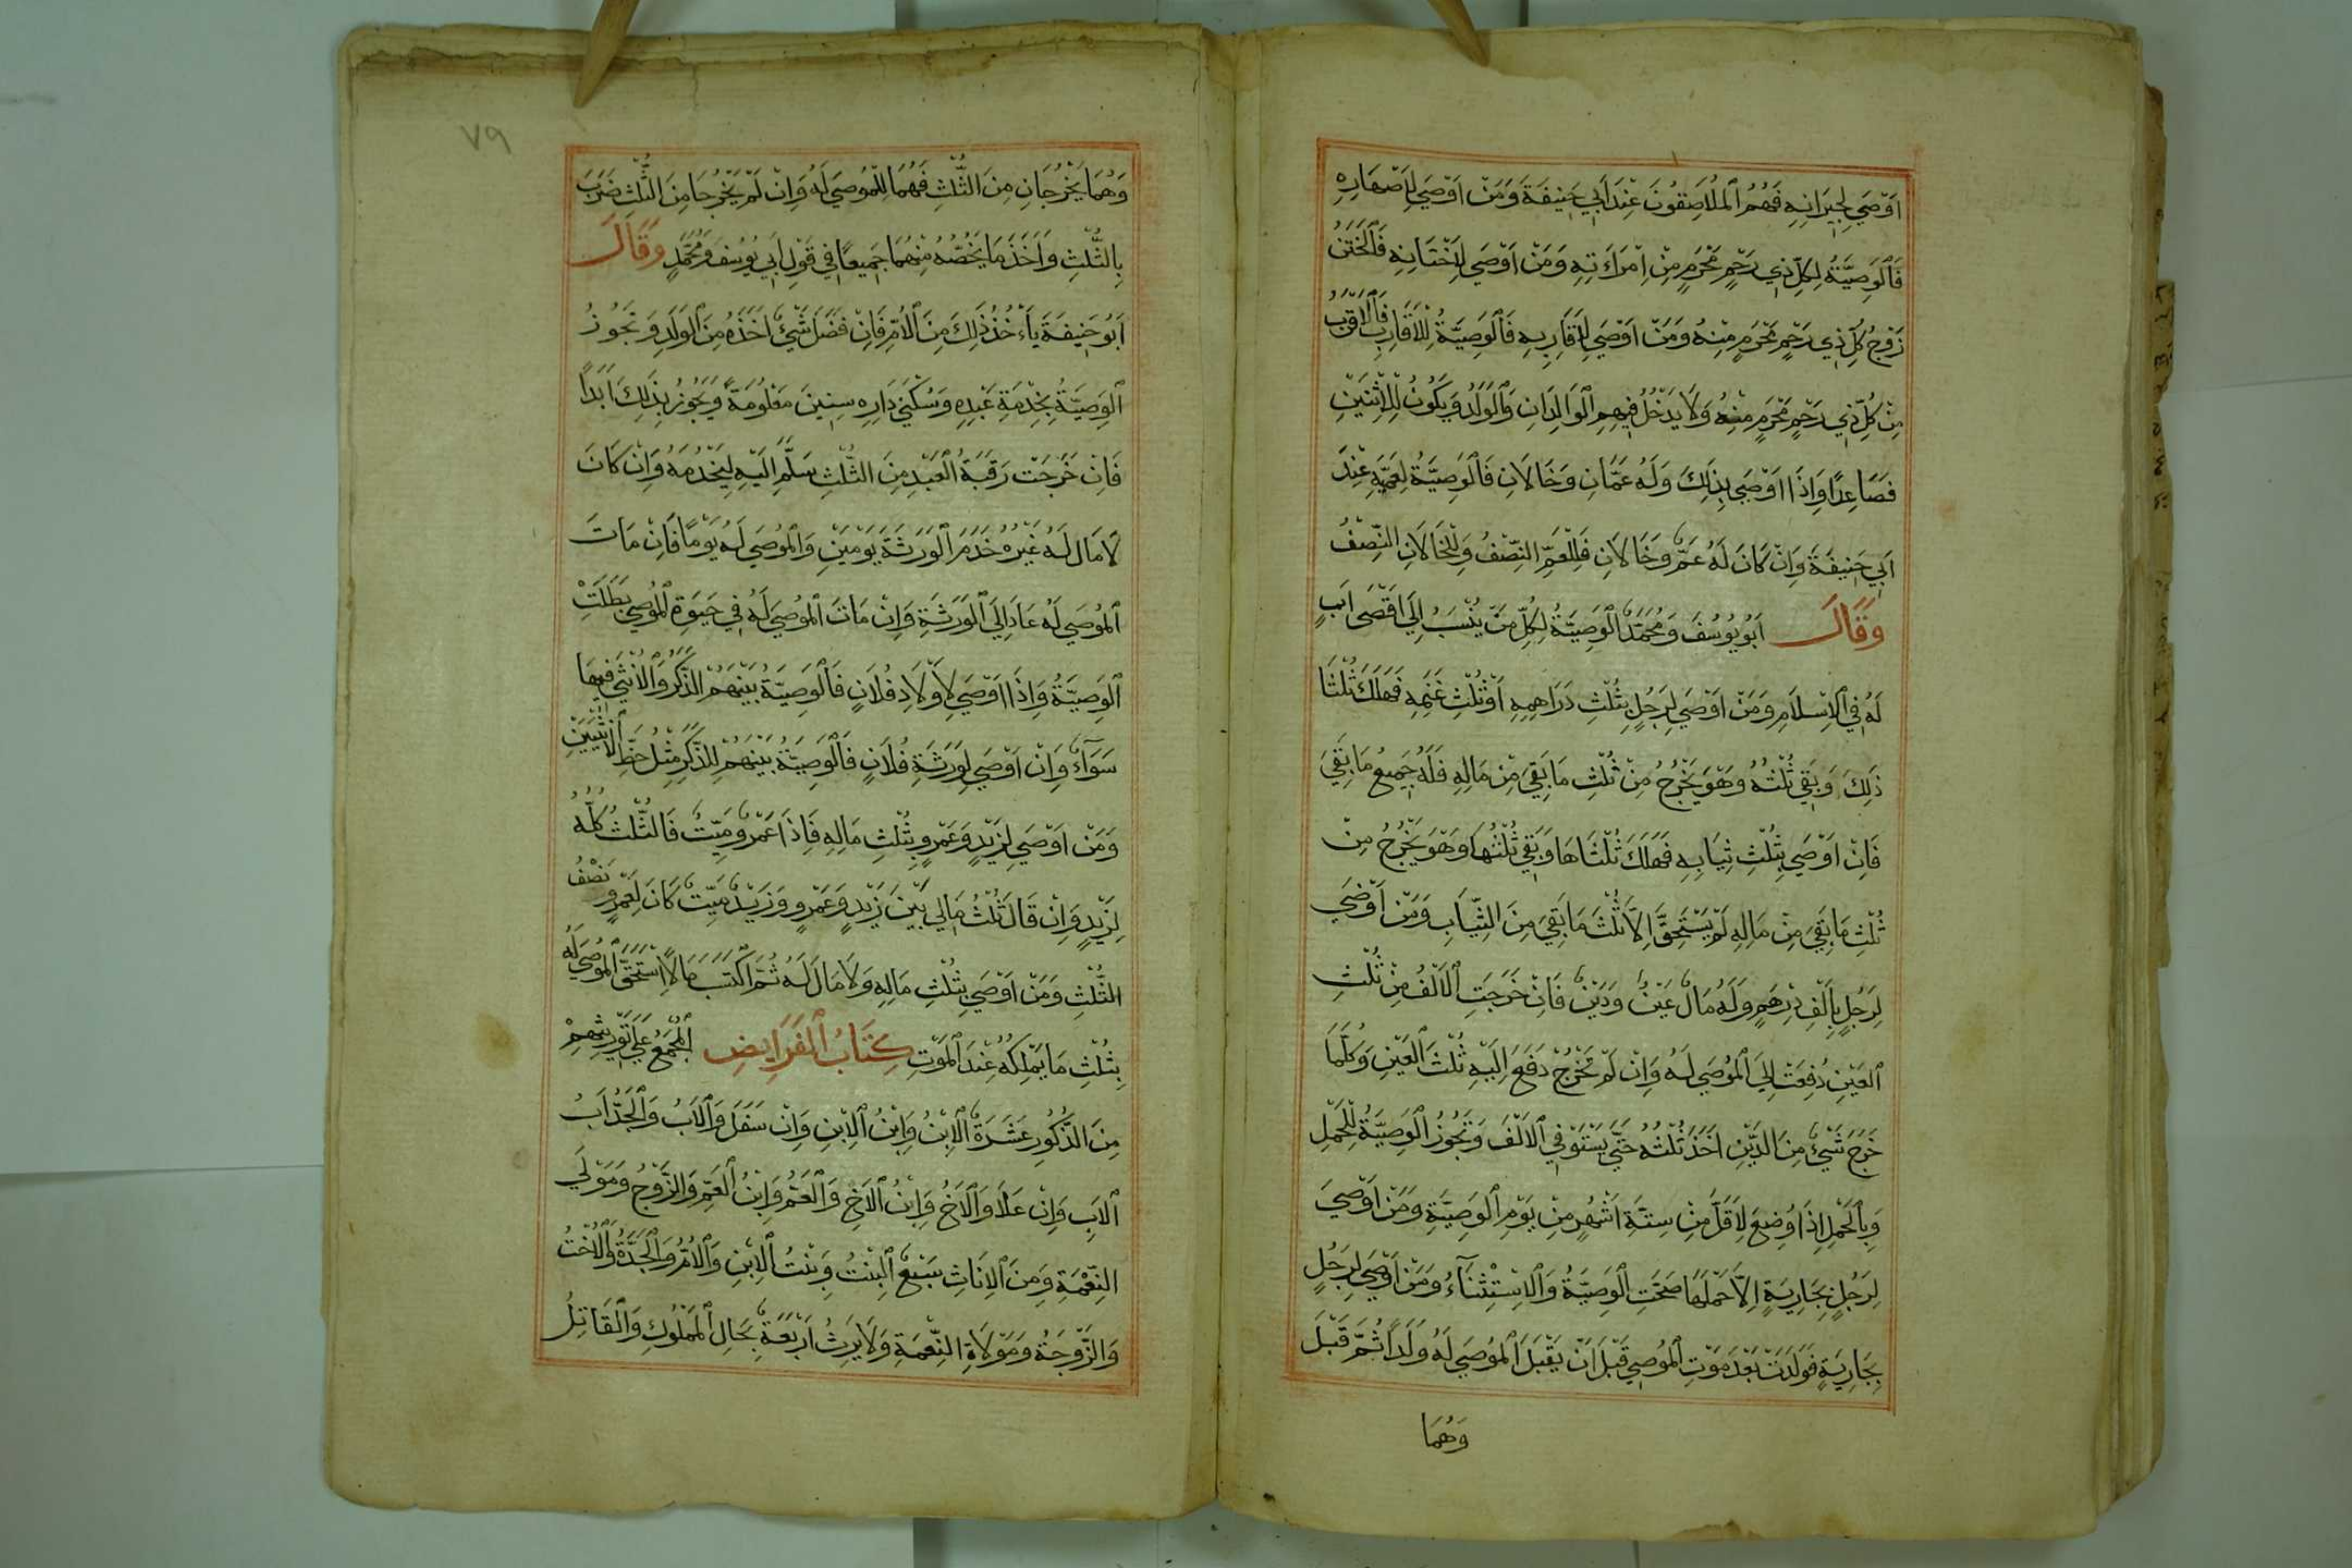 اَوْصَي لِجِيرَانِهِ فَهُمُ الْمُلَاصِقُونَ عِنْدَ اَبِي حَنِيفَةَ وَمَنْ اَوْصَي لِاَصْهَارِهِ
فَالْوَصِيَّةُ لِكُلِّ ذِي رَحِمٍ مَحْرَمٍ مِنْ اِمْرَاَتِهِ وَمَنْ اَوْصَي لِاَخْتَانِهِ فَالْخَتَنُ
زَوْجُ كُلِّ ذِي رَحِمٍ مَحْرَمٍ مِنْهُ وَمَنْ اَوْصَي لِاَقَارِبِهِ فَالْوَصِيَّةُ لِلْاَقَارِبِ فَالْاَقْرَبِ
مِنْ كُلِّ ذِي رَحِمٍ مَحْرَمٍ مِنْهُ وَلَا يَدْخُلُ فِيهِمِ الْوَالِدَانِ وَالْوَلَدُ وَيَكُونُ لِلْاِثْنَيْنِ
فَصَاعِدًا وَاِذَا اَوْصَي بِذَلِكَ وَلَهُ عَمَّانِ وَخَالَانِ فَالْوَصِيَّةُ لِعَمَّيْهِ عِنْدَ
اَبِي حَنِيفَةَ وَاِنْ كَانَ لَهُ عَمٌّ وَخَالَانِ فَلِلْعَمِّ النِّصْفُ وَلِلْخَالَانِ النِّصْفُ
وَقَالَ اَبُو يُوسُفَ وَمُحَمَّدٌ الْوَصِيَّةُ لِكُلِّ مَنْ يُنْسَبُ اِلَي اَقْصَي اَبٍ
لَهُ فِي الْاِسْلَامِ وَمَنْ اَوْصَي لِرَجُلٍ بِثُلْثِ دَرَاهِمِهِ اَوْ ثُلْثِ غَنَمِهِ فَهَلَكَ ثُلْثَا
ذَلِكَ وَبَقِيَ ثُلْثُهُ وَهُوَ يَخْرُجُ مِنْ ثُلْثِ مَا بَقِيَ مِنْ مَالِهِ فَلَهُ جَمِيعُ مَا بَقِيَ
فَاِنْ اَوْصَي بِثُلْثِ ثِيَابِهِ فَهَلَكَ ثُلْثَاهَا وَبَقِيَ ثُلْثُهَا وَهُوَ يَخْرُجُ مِنْ
ثُلْثِ مَا بَقِيَ مِنْ مَالِهِ لَمْ يَسْتَحِقَّ اِلَّا ثُلْثَ مَا بَقِيَ مِنَ الثِّيَابِ وَمَنْ اَوْصَي
لِرَجُلٍ بِاَلْفِ دِرْهَمٍ وَلَهُ مَالٌ عَيْنٌ وَدَيْنٌ فَاِنْ خَرَجَتِ الْاَلْفُ مِنْ ثُلْثِ
الْعَيْنِ دُفِعَتْ اِلَي الْمُوصَي لَهُ وَاِنْ لَمْ تَخْرُجْ دَفَعَ اِلَيْهِ ثُلْثَ الْعَيْنِ وَكُلَّمَا
خَرَجَ شَيْئٌ مِنَ الدَّيْنِ اَخَذَ ثُلْثَهُ حَتَّي يَسْتَوْفِيَ الْاَلْفَ وَتَجُوزُ الْوَصِيَّةُ لِلْحَمْلِ
وَبِالْحَمْلِ اِذَا وُضِعَ لِاَقَلَّ مِنْ سِتَّةِ اَشْهُرٍ مِنْ يَوْمِ الْوَصِيَّةِ وَمَنْ اَوْصَي
لِرَجُلٍ بِجَارِيَةٍ اِلَّا حَمْلَهَا صَحَّتِ الْوَصِيَّةُ وَالْاِسْتِثْنَآءُ وَمَنْ اَوْصَي لِرَجُلٍ
بِجَارِيَةٍ فَوَلَدَتْ بَعْدَ مَوْتِ الْمُوصِي قَبْلَ اَنْ يَقْبَلَ الْمُوصَي لَهُ وَلَدًا ثُمَّ قَبْلَ
وَهُمَا
٧٩
وَهُمَا يَخْرُجَانِ مِنَ الثُّلْثِ فَهُمَا لِلْمُوصَي لَهُ وَاِنْ لَمْ يَخْرُجَا مِنَ الثُّلْثِ ضَرَبَ
بِالثُّلْثِ وَاَخَذَ مَا يَخُصُّهُ مِنْهُمَا جَمِيعًا فِي قَوْلِ اَبِي يُوسُفَ وَمُحَمَّدٍ وَقَالَ
اَبُو حَنِيفَةَ يَاْءخُذُ ذَلِكَ مِنَ الْاُمِّ فَاِنْ فَضَلَ شَيْئٌ اَخَذَهُ مِنَ الْوَلَدِ وَتَجُوزُ
الْوَصِيَّةُ بِخِدْمَةِ عَبْدِهِ وَسُكْنَي دَارِهِ سِنِينَ مَعْلُومَةً وَيَجُوزُ بِذَلِكَ اَبَدًا
فَاِنْ خَرَجَتْ رَقَبَةُ الْعَبْدِ مِنَ الثُّلْثِ سَلَّمِ اِلَيْهِ لِيَخْدُمَهُ وَاِنْ كَانَ
لَا مَالَ لَهُ غَيْرُهُ خَدَمَ الْوَرَثَةَ يَوْمَيْنِ وَالْمُوصَي لَهُ يَوْمًا فَاِنْ مَاتَ
الْمُوصَي لَهُ عَادَ اِلَي الْوَرَثَةِ وَاِنْ مَاتَ الْمُوصَي لَهُ فِي حَيَوةِ الْمُوصِي بَطَلَتْ
الْوَصِيَّةُ وَاِذَا اَوْصَي لِاَوْلَادِ فُلَانٍ فَالْوَصِيَّةُ بَيْنَهُمْ الذَّكَرُ وَالْاُنْثَي فِيهَا
سَوَآءٌ وَاِنْ اَوْصَي لِوَرَثَةِ فُلَانٍ فَالْوَصِيَّةُ بَيْنَهُمْ لِلذَّكَرِ مِثْلُ حَظِّ الْاُنْثَيَيْنِ
وَمَنْ اَوْصَي لِزَيْدٍ وَعَمْرٍو بِثُلْثِ مَالِهِ فَاِذَا عَمْرٌو مَيِّتٌ فَالثُّلْثُ كُلُّهُ
لِزَيْدٍ وَاِنْ قَالَ ثُلْثُ مَالِي بَيْنَ زَيْدٍ وَعَمْرٍو وَزَيْدٌ مَيِّتٌ كَانَ لِعَمْرٍو نِصْفُ
الثُّلْثِ وَمَنْ اَوْصَي بِثُلْثِ مَالِهِ وَلَا مَالَ لَهُ ثُمَّ اكْتَسَبَ مَالًا اسْتَحَقَّ الْمُوصَي لَهُ
بِثُلْثِ مَا يَمْلِكُهُ عِنْدَ الْمَوْتِ كِتَابُ الْفَرَايِضِ الْمُجْمَعُ عَلَي تَوْرِيثِهِمْ
مِنَ الذُّكُورِ عَشَرَةٌ الْاِبْنُ وَاِبْنُ الْاِبْنِ وَاِنْ سَفَلَ وَالْاَبُ وَالْجَدُّ اَبُ
الْاَبِ وَاِنْ عَلَا وَالْاَخُ وَاِبْنُ الْاَخِ وَالْعَمُّ وَاِبْنُ الْعَمِّ وَالزَّوْجُ وَمَوْلَي
النِّعْمَةِ وَمِنَ الْاِنَاثِ سَبْعٌ الْبِنْتُ وَبِنْتُ الْاِبْنِ وَالْاُمُّ وَالْجَدَّةُ وَالْاُخْتُ
وَالزَّوْجَةُ وَمَوْلَاةِ النِّعْمَةِ وَلَا يَرِثُ اَرْبَعَةٌ بِحَالِ الْمَمْلُوكِ وَالْقَاتِلُ